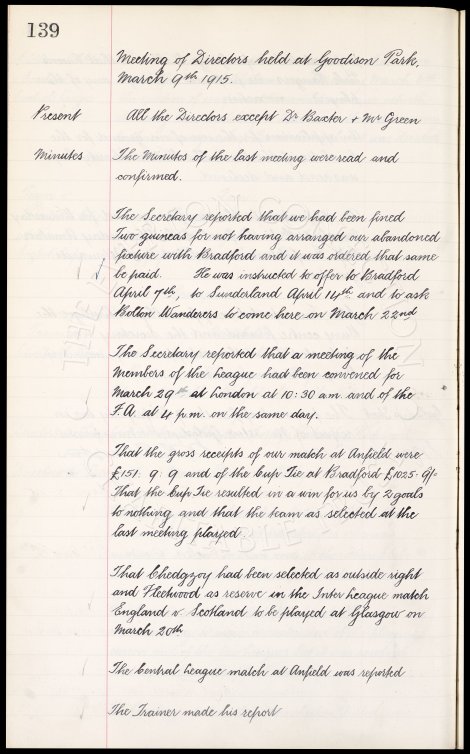 139
Meeting of Directors held at Goodison Park,
March 9th 1915.
Present All the Directors except Dr Baxter & Mr Green
Minutes The Minutes of the last meeting were read and
confirmed.
The Secretary reported that we had been fined
Two guineas for not having arranged our abandoned
fixture with Bradford and it was ordered that same
be paid. He was instructed to offer to Bradford
April 7th, to Sunderland April 14th and to ask
Bolton Wanderers to come here on March 22nd
The Secretary reported that a meeting of the
members of the League had been convened for
March 29th at London at 10:30 am and of the
F.A. at 4 p.m. on the same day.
That the gross receipts of our match at Anfield were
£151. 9. 9 and of the Cup Tie at Bradford £1025. 9/-
That the Cup Tie resulted in a win for us by 2 goals
to nothing and that the team as selected at the
last meeting played
That Chedgzoy had been selected as outside right
and Fleetwood as reserve in the Inter League match
England v Scotland to be played at Glasgow on
March 20th
The Central League match at Anfield was reported
The Trainer made his report